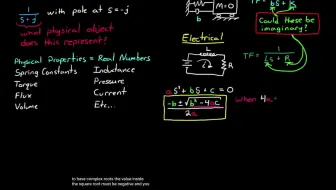 1/(s+j) with pole at s=-j
what physical object
does this represent?
Physical Properties = Real Numbers
Spring Constants Inductance
Torque Pressure
Flux Current
Volume Etc...
b
M=0
Electrical
L
R
Could these be
imaginary?
TF= 1/(Ls + R)
as²+bs+c = 0
-b ± √(b² - 4ac)
2a
when 4a
to have complex roots the value inside
the square root must be negative and you